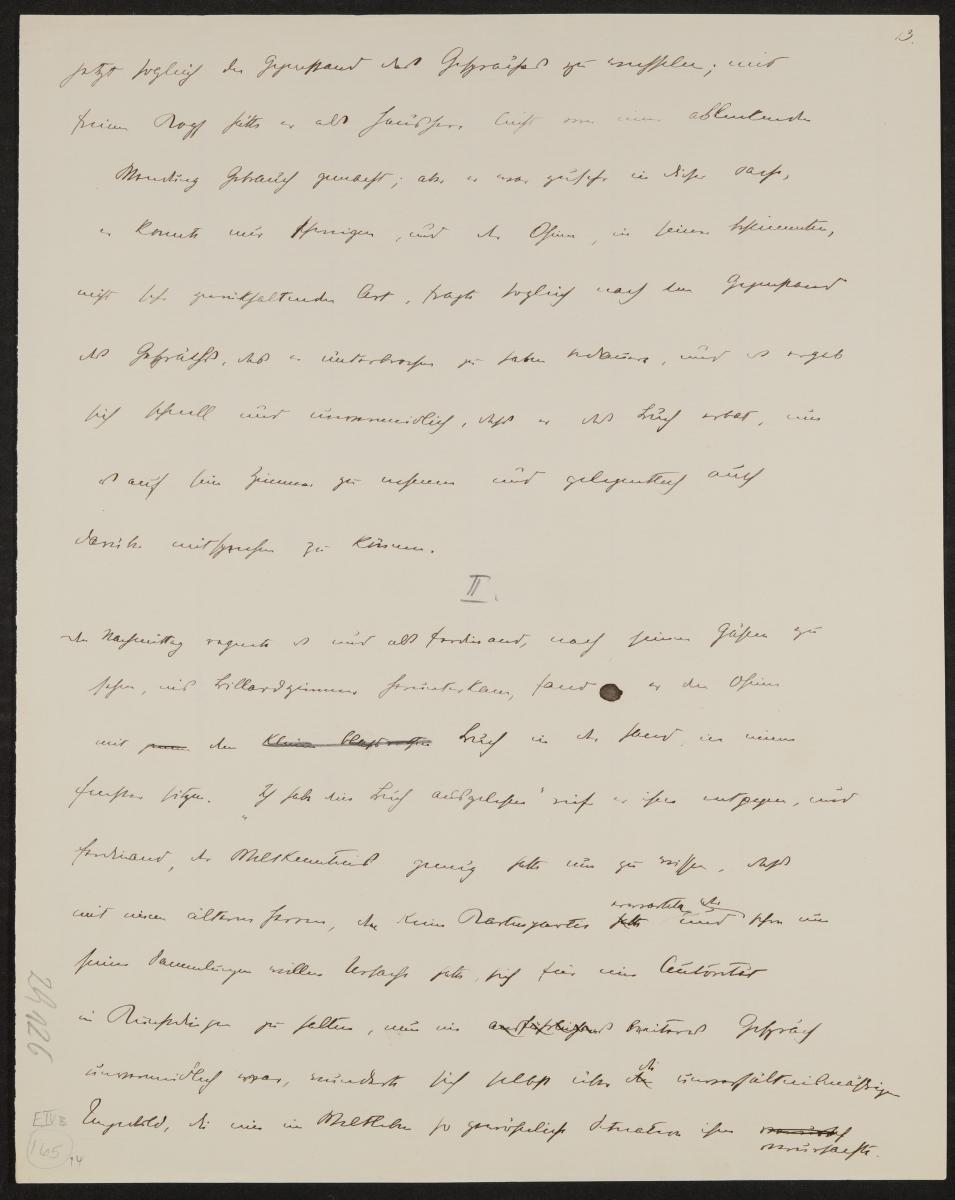 13.
jetzt sogleich den Gegenstand des Gespräches zu wechseln; mit
freiem Kopf hätte er als Hausherr leicht von einer ablenkenden
Wendung Gebrauch gemacht; aber er war zerstreut in dieser Sache,
er konnte nur schweigen, und der Oheim, in seiner bestimmten,
nicht sehr zurückhaltenden Art, fragte sogleich nach dem Gegenstand
des Gesprächs, das er unterbrochen zu haben bedauere, und es ergab
sich schnell und unvermeidlich, dass er das Buch erbat, um
es auf sein Zimmer zu nehmen und gelegentlich auch
darüber mitsprechen zu können.
II.
Den Nachmittag regnete es und als Ferdinand, nach seinen Gästen zu
sehen, ins Billardzimmer herunterkam, fand er den Oheim
mit dem kleinen blassrothen Buch in der Hand in einem
Fenster sitzen. „Ich habe dies Buch ausgelesen" rief er ihm entgegen, und
Ferdinand, der Weltkenntnis genug hatte um zu wissen, dass
mit einem älteren Herrn, der keine Kartenpartie hatte erwartete der und schon um
seiner Sammlungen willen Ursache hatte, sich für eine Autorität
in Kunstdingen zu halten, nun ein ausführliches breiteres Gespräch
unvermeidlich war, wunderte sich selbst über die unverhältnismässige
Ungeduld, die eine im Weltleben so gewöhnliche Situation ihm
verursachte.
24126
E IV B
165
14